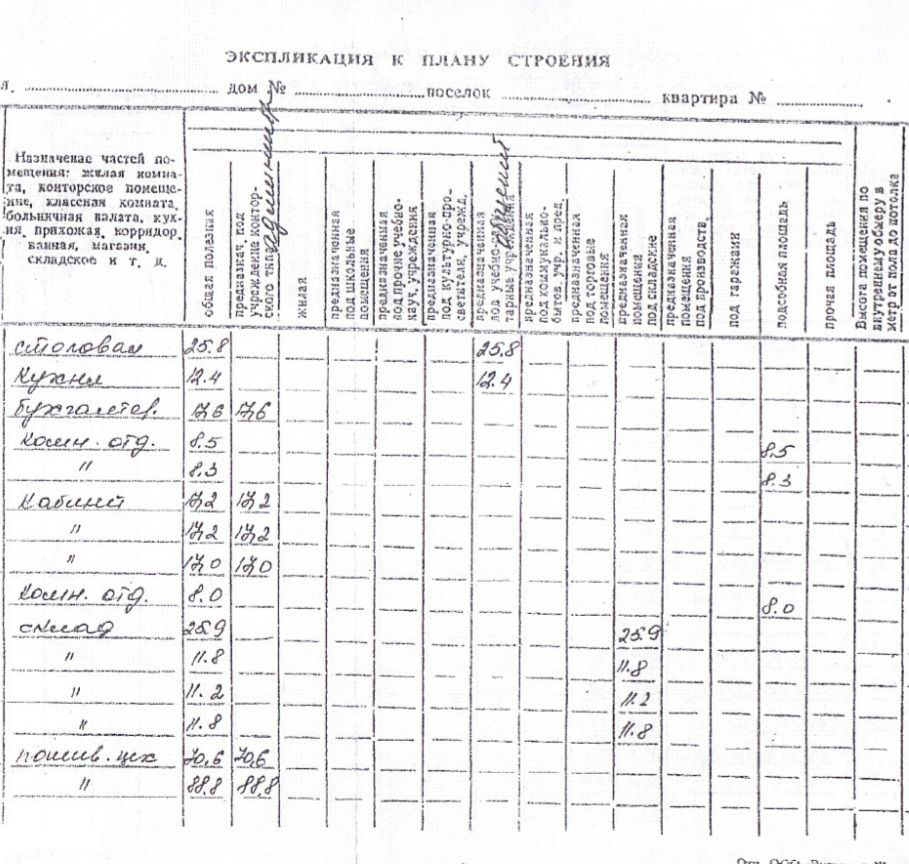 ЭКСПЛИКАЦИЯ К ПЛАНУ СТРОЕНИЯ
я. дом № поселок квартира №
Назначение частей по-
мещения: жилая комна-
та, конторское помеще-
ние, классная комната,
больничная палата, кух-
ня прихожая, корридор
ванная, магазин,
складское и т. д.
общая полезная
предназнач. под
учреждение контор-
ского
жилая
предназначенная
под школьные
помещения
предназначенная
под прочие учебно-
науч. учреждения
предназначенная
под культурно-про-
светители. учрежд.
предназначенная
под
тарные учреждения
предназначенная
под коммунально-
бытов. учр. и пред.
предназначенная
под торговые
помещения
предназначенная
помещений
под складские
предназначенная
помещения
под производств.
под гаражами
подсобная площадь
прочая площадь
Высота помещения по
внутреннему обмеру в
метр от пола до потолка
столовая 25.8 25.8
Кухня 12.4 12.4
бухгалтер. 17,6 17,6
Комн. отд. 8.5 8.5
" 8.3 8.3
Кабинет 17,2 17,2
" 17,2 17,2
" 17,0 17,0
Комн. отд. 8.0 8.0
склад 25.9 25.9
" 11.8 11.8
" 11.2 11.2
" 11.8 11.8
пошив. цех 70,6 70,6
" 88,8 88,8